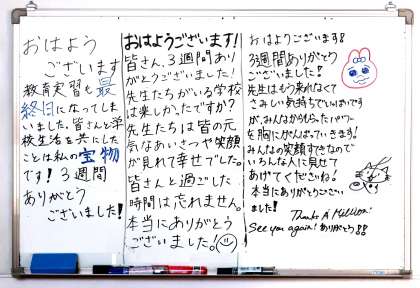 おはよう
ございます
教育実習も最
終日になってしまい
いました。皆さんと学
校生活を共にした
ことは私の宝物
です！３週間
ありがとう
ございました！
おはようございます！
皆さん、３週間あり
がとうございました！
先生たちがいる学校
は楽しかったですか？
先生たちは皆の元
気なあいさつや笑顔
が見れて幸せでした。
皆さんと過ごした
時間は忘れません。
本当にありがとう
ございました！
おはようございます！
3週間ありがとう
ございました！
先生はもう来れなくて
さみしい気持ちでいっぱいです
が、みんなからもらったパワー
を胸にがんばっていきます！
みんなの笑顔すきなので
いろんな人に見せて
あげてくださいね！
本当にありがとうござい
ました！
Thanks A Million!
See you again! ありがとう!!